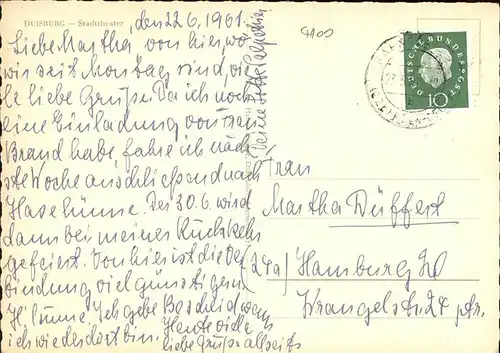 DUISBURG — Stadttheater
den 22.6.1961.
Liebe Martha, von hier, wo
wir seit Montag sind, vie-
le liebe Grüße. Da ich noch
eine Einladung von Frau
Brand habe, fahre ich näch-
ste Woche anschliessend nach
Haselünne. Der 30.6. wird
dann bei meiner Rückkehr
gefeiert. Von hier ist die Ver-
bindung viel günstiger n.
H'lünne. Ich gebe Bescheid wenn
ich wieder dort bin. Heute viele
liebe Grüße allseits
Deine
DEUTSCHE BUNDESPOST
10
Frau
Martha Düffert
(24a) Hamburg 20
Wrangelstr. 24 ptr.